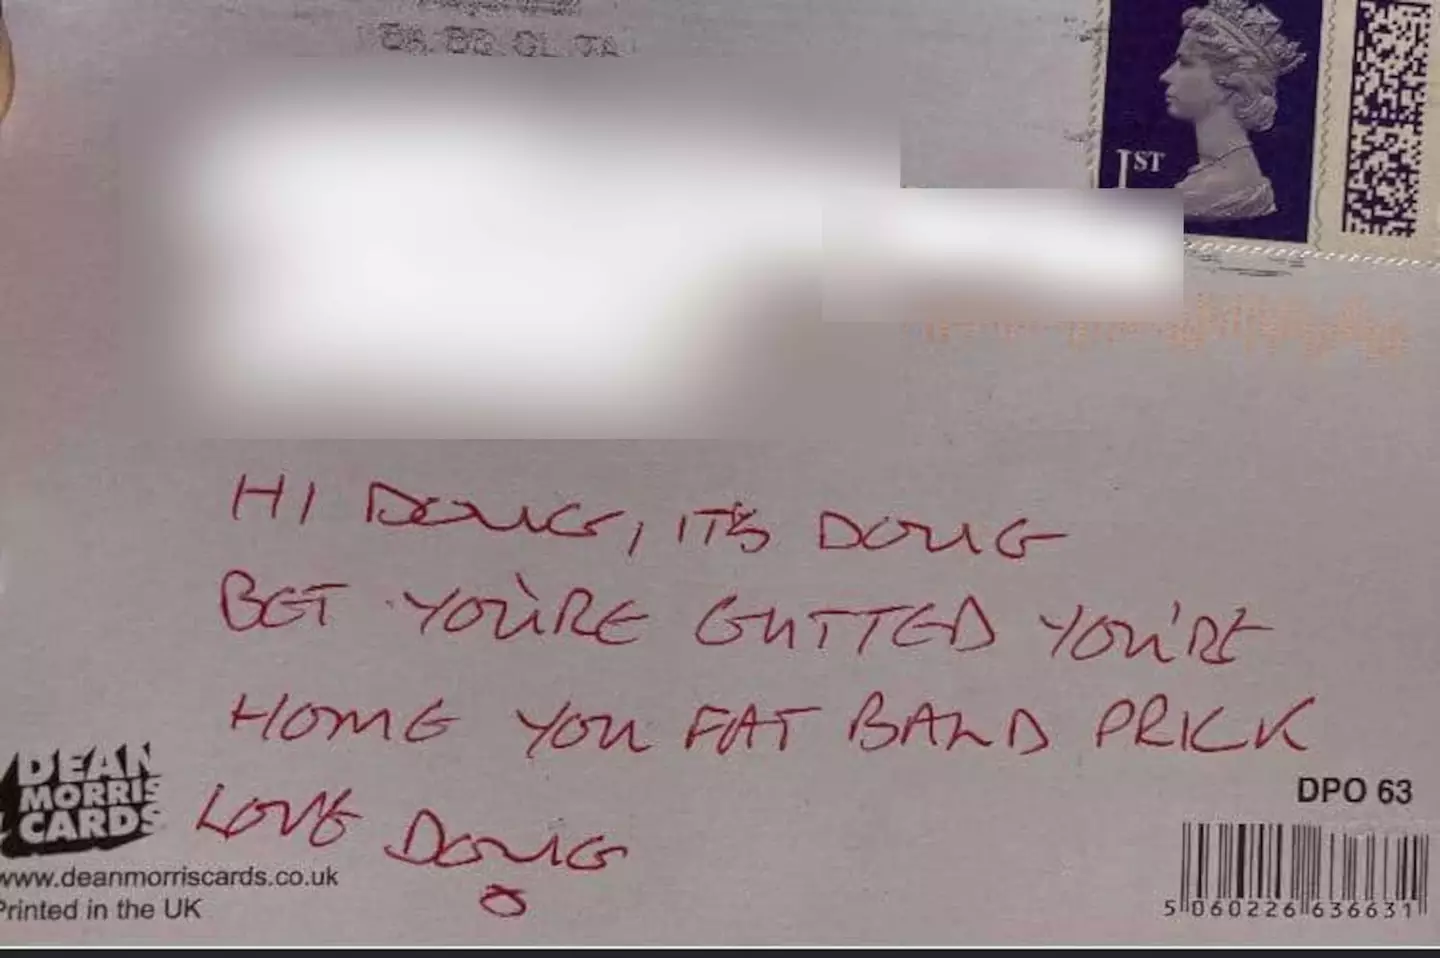 1ST
HI DOUG, IT'S DOUG
BET YOU'RE GUTTED YOU'RE
HOME YOU FAT BALD PRICK
LOVE DOUG
DEAN
MORRIS
CARDS
www.deanmorriscards.co.uk
Printed in the UK
DPO 63
5 060226 636631